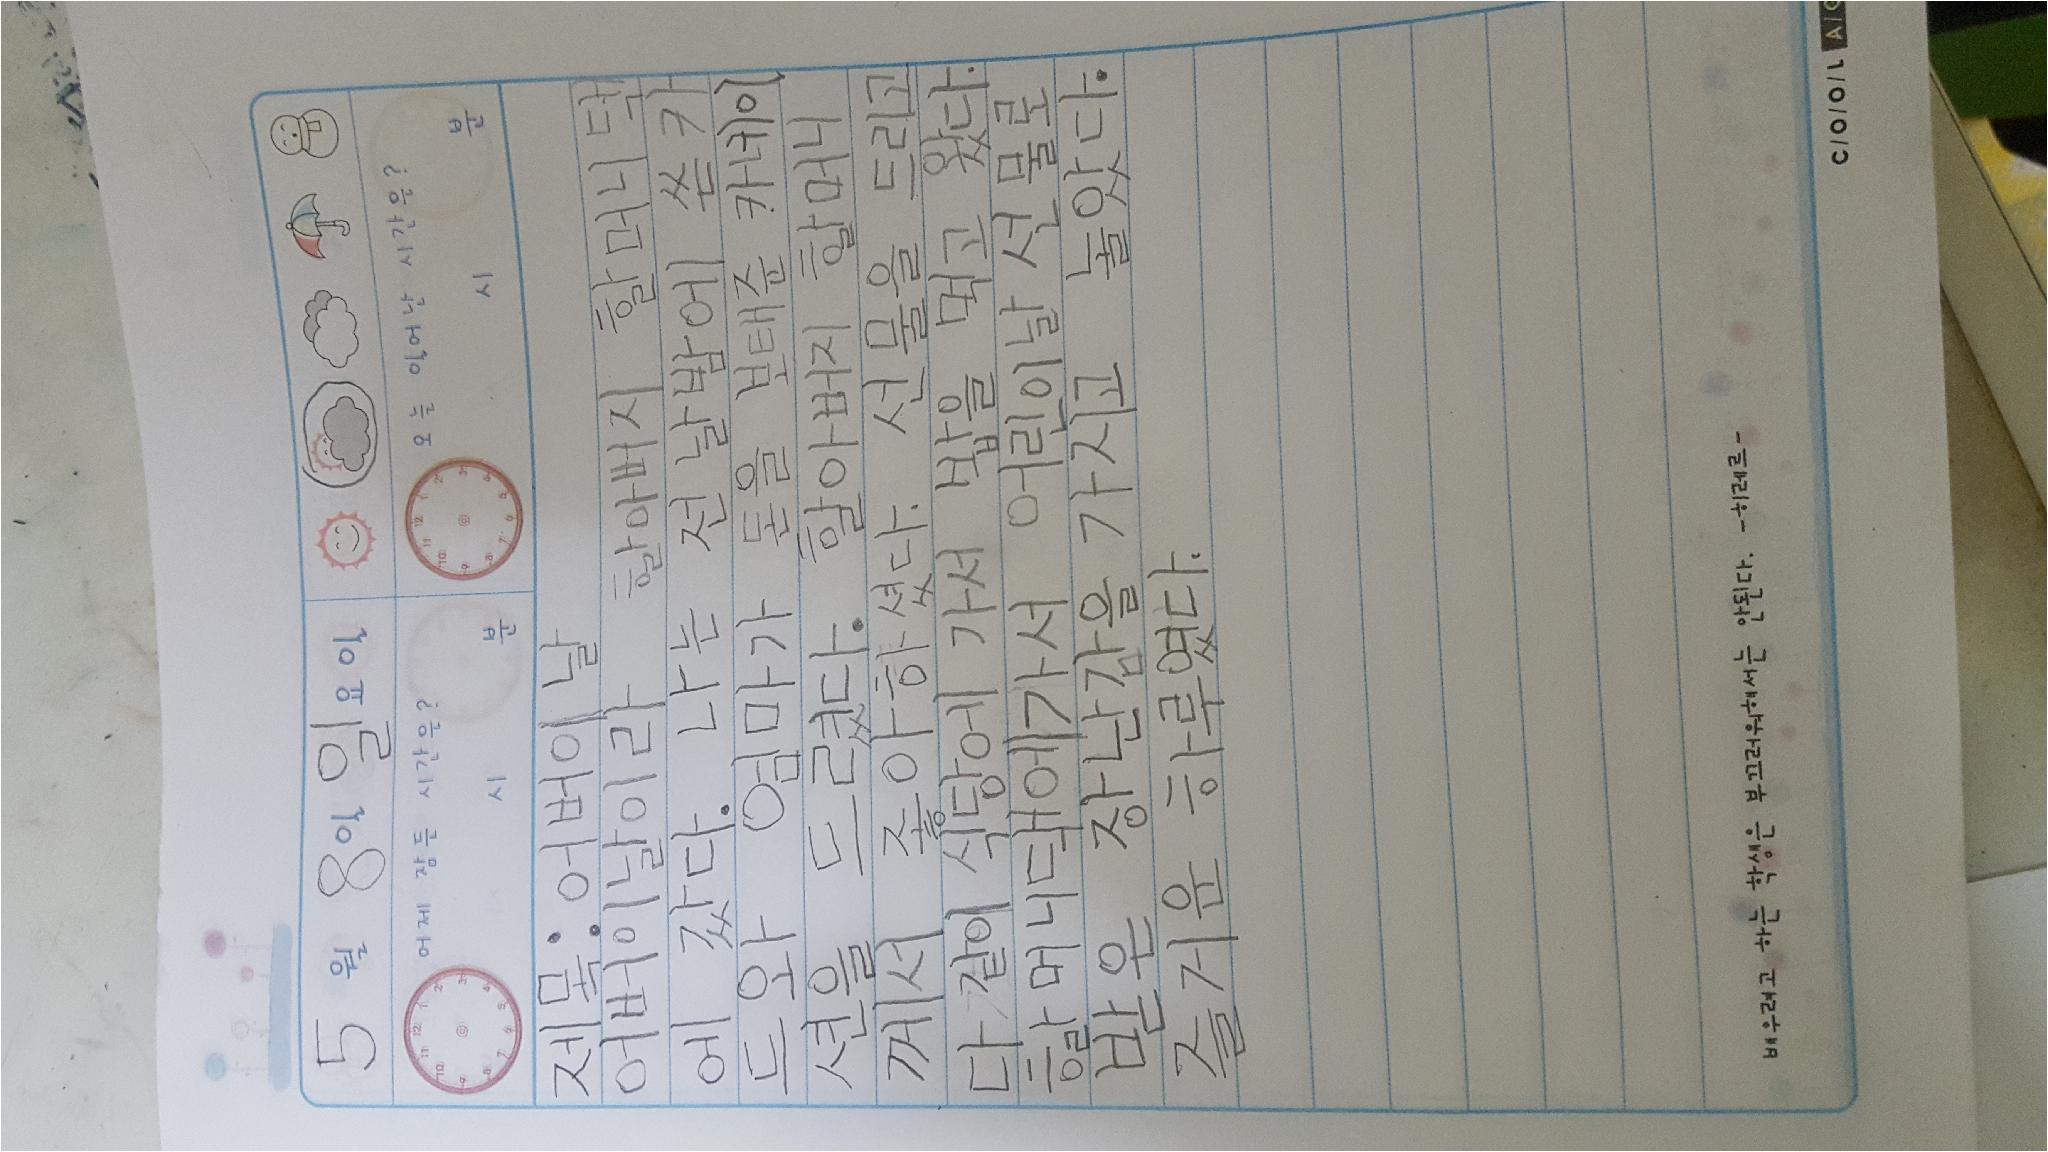 5 월 8일 일요일
어제 잠 든 시간은?
시 분
오늘 일어난 시간은?
시 분
제목: 어버이 날
어버이날이라 할아버지 할머니 댁
에 갔다. 나는 전 날 밤에 쓴 카
드와 엄마가 돈을 보태준 카네이
션을 드렸다. 할아버지 할머니
께서 좋아하셨다. 선물을 드리고
다 같이 식당에 가서 밥을 먹고 왔다.
할머니댁에가서 어린이날 선물로
받은 장난감을 가시고 놀았다.
즐거운 하루였다.
배우려고 하는 학생은 부끄러워해서는 안된다. -히레르-
C/O/O/L